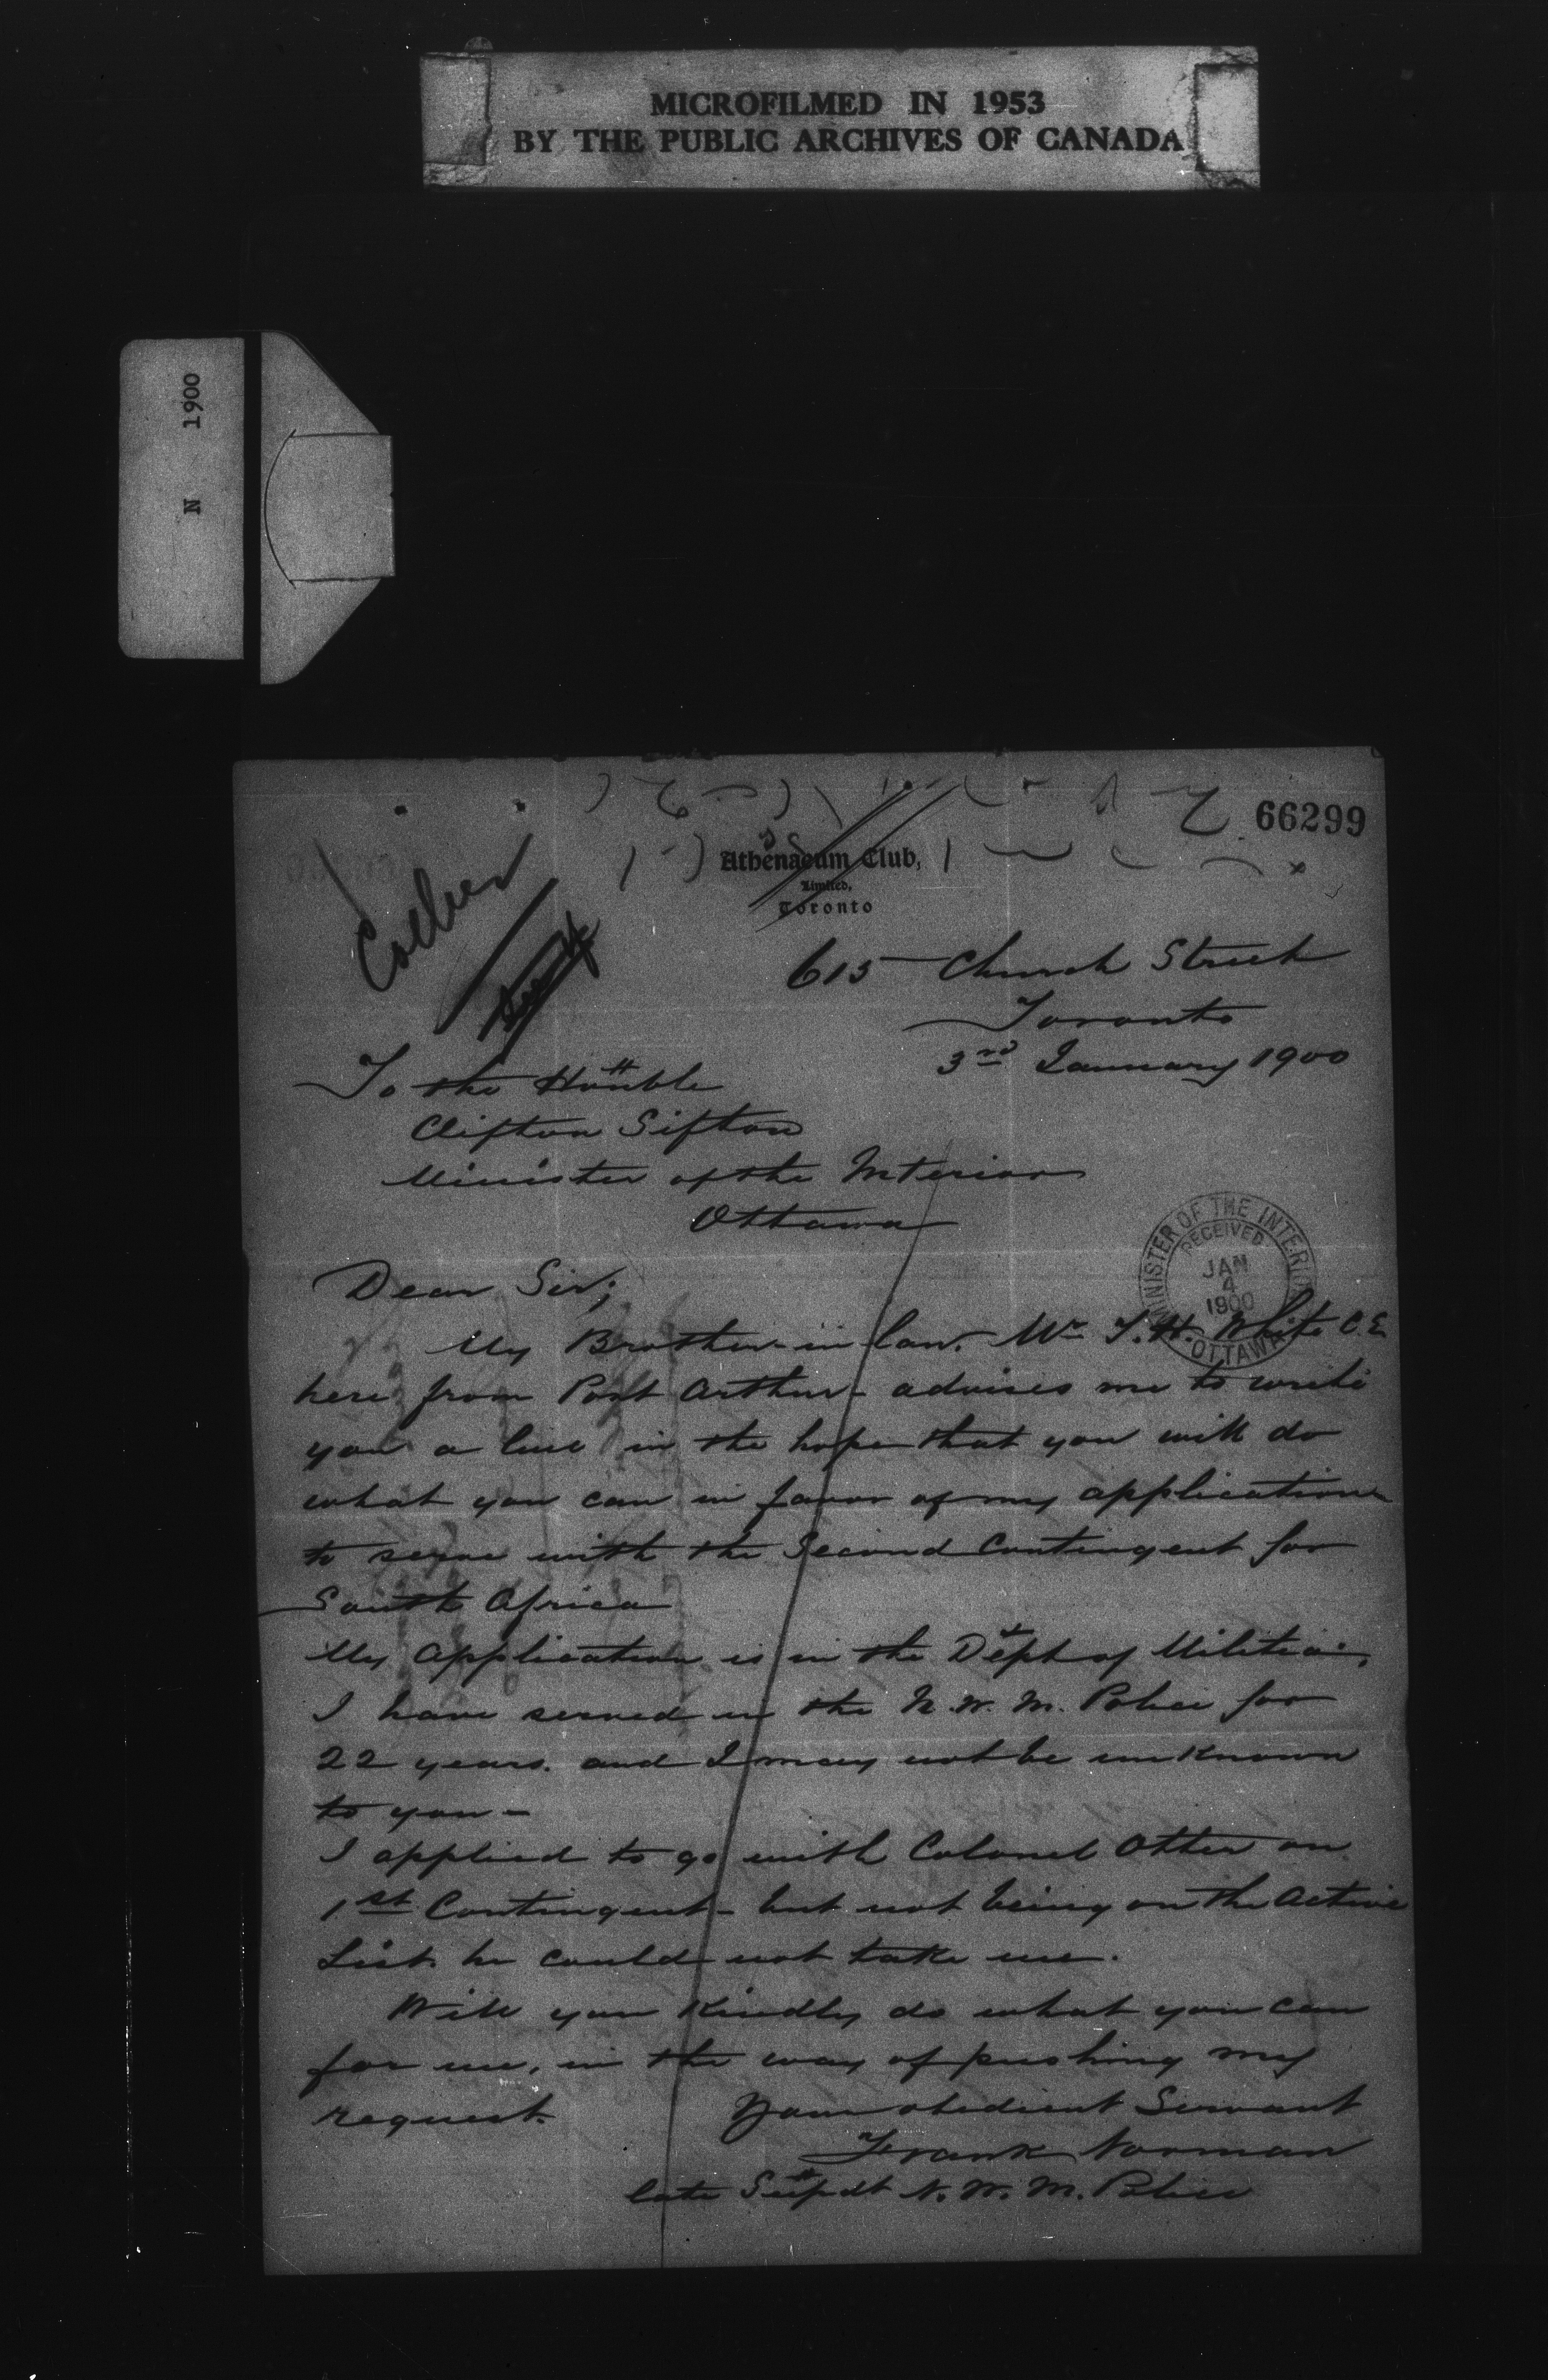 MICROFILMED IN 1953
BY THE PUBLIC ARCHIVES OF CANADA
N 1900
66299
Athenaeum Club,
Limited,
Toronto
615 Church Street
Toronto
3rd January 1900
To the Honble
Clifton Sifton
Minister of the Interior
Ottawa
MINISTER OF THE INTERIOR
RECEIVED
JAN
4
1900
OTTAWA
Dear Sir;
My Brother-in law. Mr T. H. White C.E
here from Port Arthur - advises me to write
you a line in the hope that you will do
what you can in favor of my application
to serve with the Second Contingent for
South Africa
My Application is in the Dept of Militia.
I have served in the N. W. M. Police for
22 years. and I may not be unknown
to you -
I applied to go with Colonel Otter on
1st Contingent - but not being on the Active
List he could not take me.
Will you Kindly do what you can
for me, in the way of pushing my
request.
Your obedient Servant
Frank Norman
late Supdt N. W. M. Police